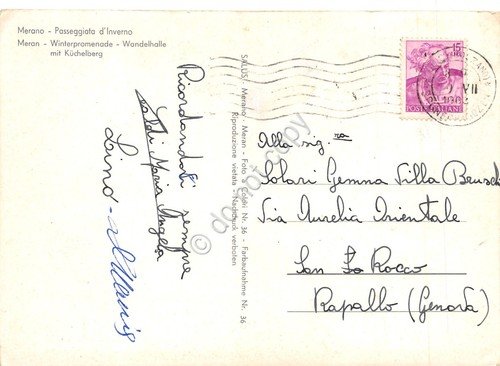 Merano - Passeggiata d'Inverno
Meran - Winterpromenade - Wandelhalle
mit Küchelberg
SALUS, Merano - Meran - Foto a Colori Nr. 36 - Farbaufnahme Nr. 36
Riproduzione vietata - Nachdruck verboten
Ricordandoti sempre
Maria Angela
Lino
15
POSTE ITALIANE
VII
Alla sig.ra
Solari Gemma Villa
Via Aurelia Orientale
San Rocco
Rapallo (Genova)
do not copy